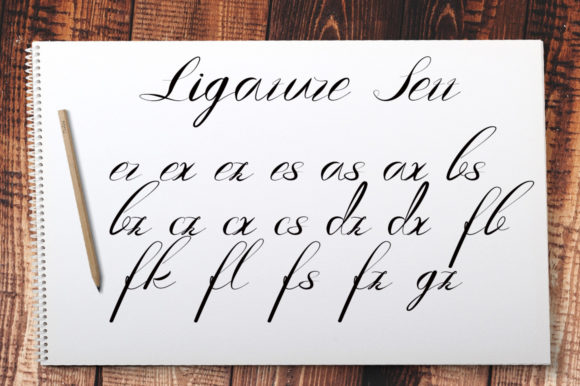 Ligature Set
er ex ez es as ax bs
bz cz cx cs dz dx fb
fk fl fs fz gz